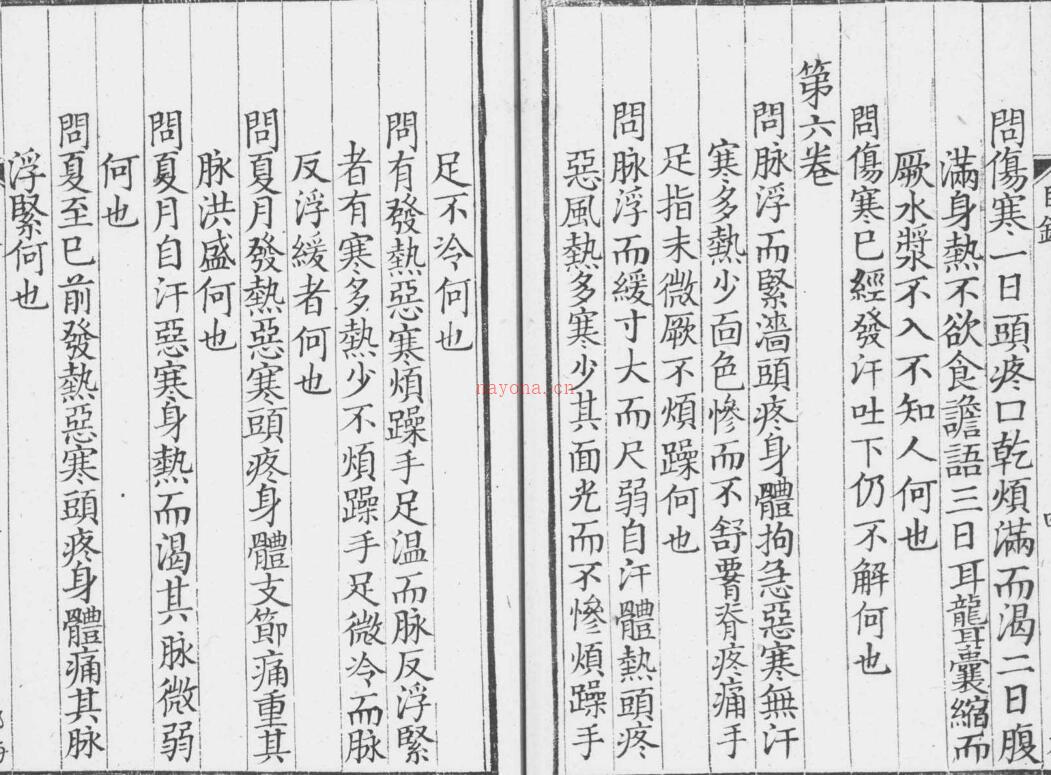 問傷寒一日頭疼口乾煩滿而渴二日腹
滿身熱不欲食譫語三日耳聾囊縮而
厥水漿不入不知人何也
問傷寒巳經發汗吐下仍不解何也
第六卷
問脉浮而緊濇頭疼身體拘急惡寒無汗
寒多熱少面色慘而不舒腰脊疼痛手
足指末微厥不煩躁何也
問脉浮而緩寸大而尺弱自汗體熱頭疼
惡風熱多寒少其面光而不慘煩躁手
足不冷何也
問有發熱惡寒煩躁手足温而脉反浮緊
者有寒多熱少不煩躁手足微冷而脉
反浮緩者何也
問夏月發熱惡寒頭疼身體支節痛重其
脉洪盛何也
問夏月自汗惡寒身熱而渴其脉微弱
何也
問夏至巳前發熱惡寒頭疼身體痛其脉
浮緊何也
nayona.cn